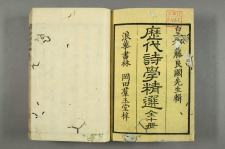 藤良國先生輯
歷代詩學精選 全十冊
浪華書林 岡田群玉堂梓